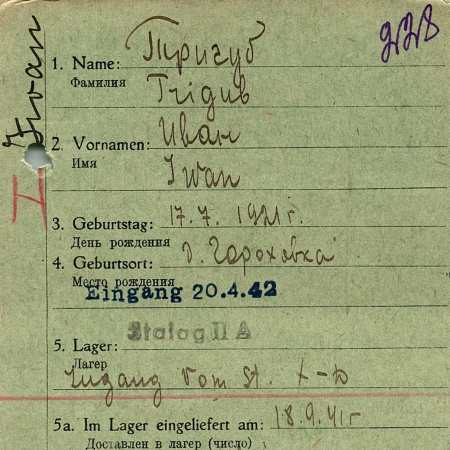 228
Iwan
1. Name: Тригуб
Фамилия
Trigub
2. Vornamen: Иван
Имя
Iwan
3. Geburtstag: 17. 7. 1921 г.
День рождения
4. Geburtsort: д. Гороховка
Место рождения
Eingang 20.4.42
Stalag II A
5. Lager:
Лагер
Zugang vom St. X-D
5a. Im Lager eingeliefert am: 18.9.41 г
Доставлен в лагер (число)